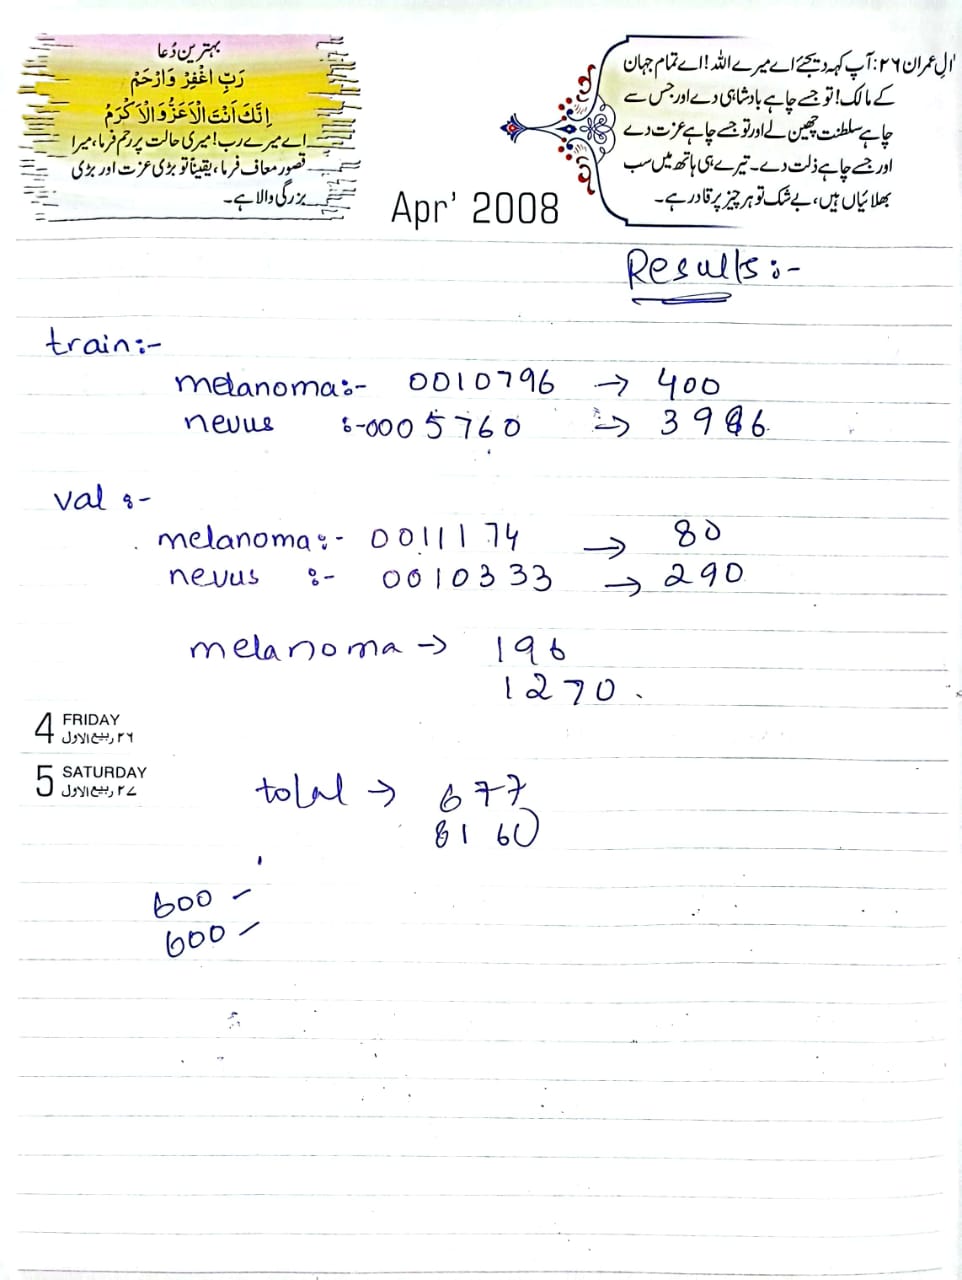 بہترین دُعا
رَبِّ اغْفِرْ وَارْحَمْ
اِنَّكَ اَنْتَ الْاَعَزُّ وَالْاَكْرَمُ
اے میرے رب! میری حالت پر رحم فرما، میرا
قصور معاف فرما، یقیناً تو بڑی عزت اور بڑی
بزرگی والا ہے۔
Apr' 2008
اٰلِ عمران ۲۶: آپ کہہ دیجئے اے میرے اللہ! اے تمام جہان
کے مالک! تو جسے چاہے بادشاہی دے اور جس سے
چاہے سلطنت چھین لے اور تو جسے چاہے عزت دے
اور جسے چاہے ذلت دے۔ تیرے ہی ہاتھ میں سب
بھلائیاں ہیں، بے شک تو ہر چیز پر قادر ہے۔
Results:-
train:-
melanoma:- 0010796 → 400
nevus :- 0005760 →
val :-
melanoma:- 0011174 → 80
nevus :- 0010333 → 290
melanoma → 196
1270.
4 FRIDAY
۲۶ ربیع الاول
5 SATURDAY
۲۷ ربیع الاول
total → 677
8160
600 -
600 -